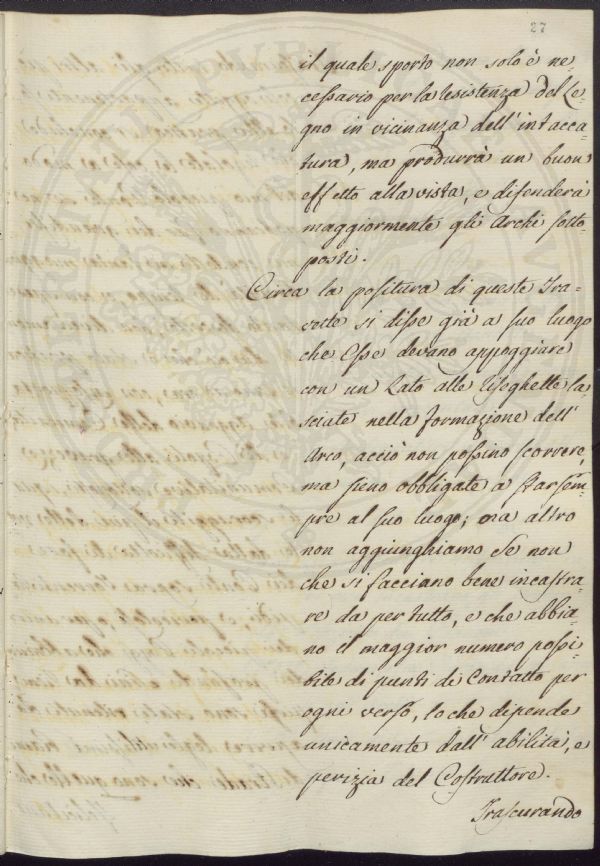 27
il quale sporto non solo è ne
cessario per la resistenza del Le-
gno in vicinanza dell' intacca-
tura, ma produrrà un buon
effetto alla vista, e difenderà
maggiormente gli Archi sotto-
posti.
Circa la positura di queste Tra-
vette si disse già a suo luogo
che Esse devano appoggiare
con un Lato alle Seghette la-
sciate nella formazione dell'
Arco, acciò non possino scorrere,
ma sieno obbligate a star sem-
pre al suo luogo; ora altro
non aggiunghiamo se non
che si facciano bene incastra-
re da per tutto, e che abbia-
no il maggior numero possi-
bile di punti di Contatto per
ogni verso, lo che dipende
unicamente dall' abilità, e
perizia del Costruttore.
Trascurando